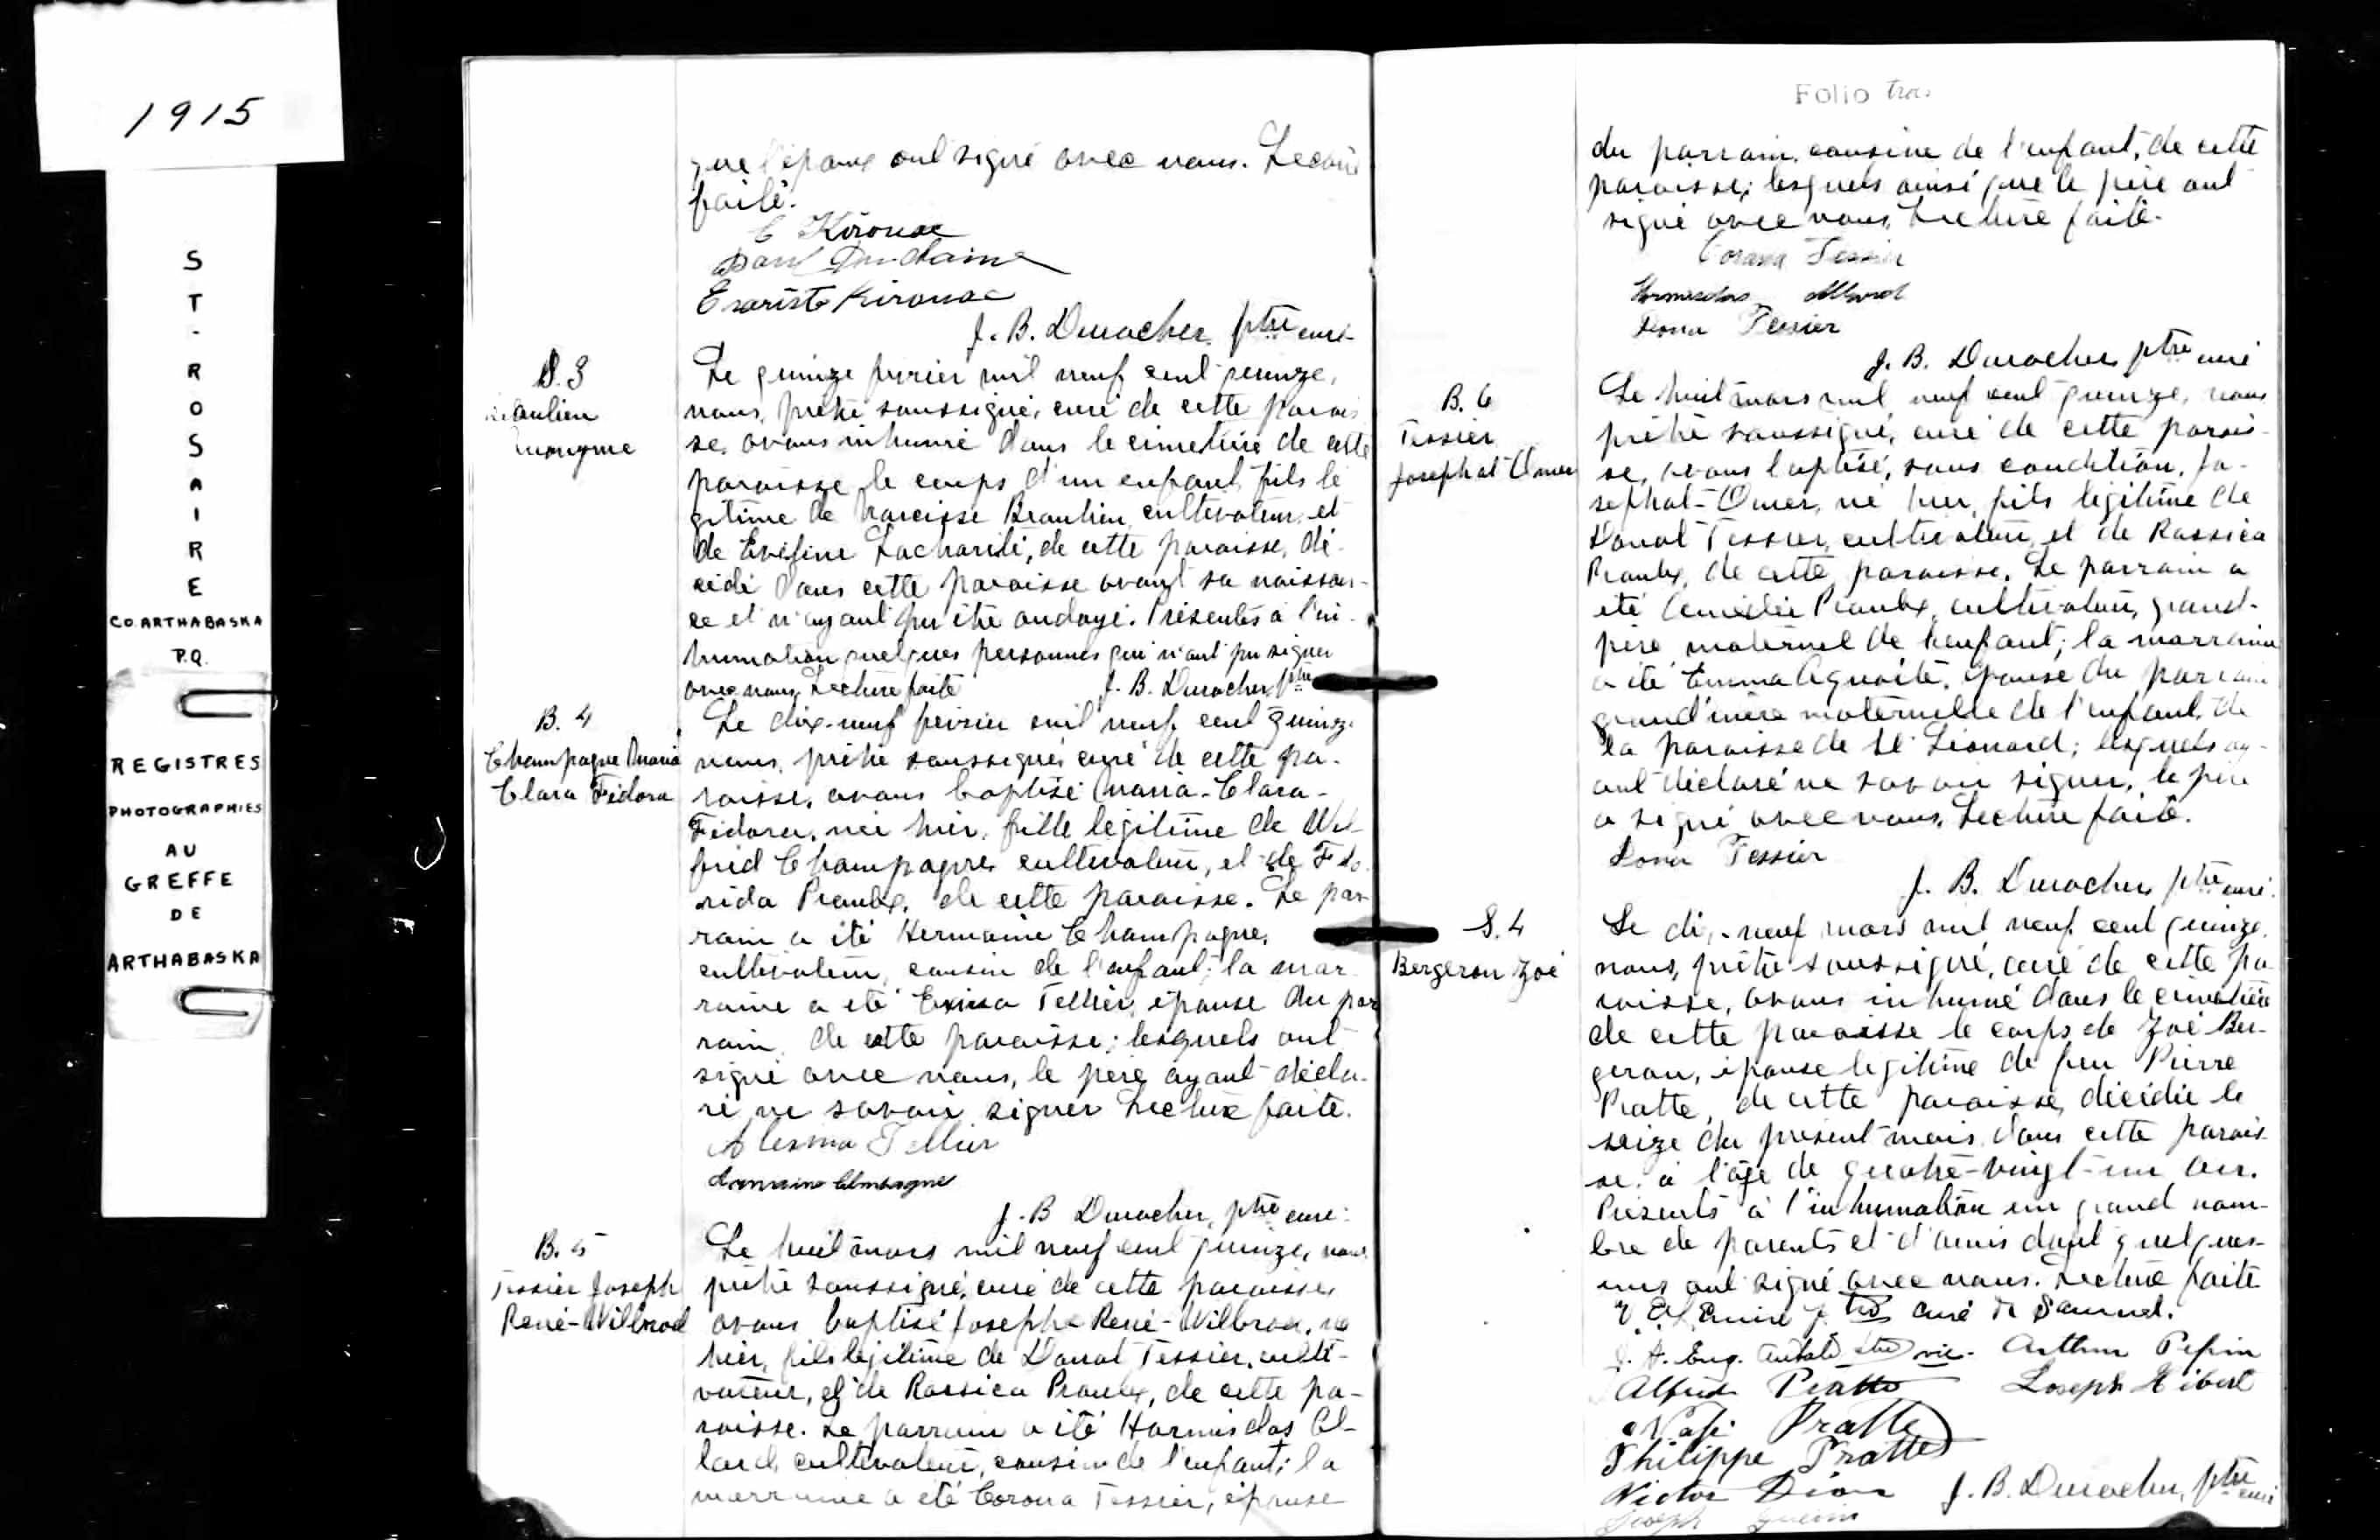 1915
ST-ROSAIRE
CO. ARTHABASKA
P.Q.
REGISTRES
PHOTOGRAPHIES
AU
GREFFE
DE
ARTHABASKA
que l'époux ont signé avec nous. Lecture
faite.
C Kirouac
Evariste Kirouac
J. B. Durocher, ptre curé
S. 3
Beaulieu
Anonyme
Le quinze février mil neuf cent quinze,
nous, prêtre soussigné, curé de cette parois
se, avons inhumé dans le cimetière de cette
paroisse le corps d'un enfant, fils lé
gitime de Narcisse Beaulieu, cultivateur, et
de Evéline Lacharité, de cette paroisse, dé-
cédé dans cette paroisse avant sa naissan-
ce et n'ayant pu être ondoyé. Présents à l'in-
humation quelques personnes qui n'ont pu signer
avec nous. Lecture faite J. B. Durocher, ptre
B. 4
Champagne Maria
Clara Fédora
Le dix-neuf février mil neuf cent quinze
nous, prêtre soussigné, curé de cette pa-
roisse, avons baptisé Maria-Clara-
Fédora, née hier, fille légitime de Wil
frid Champagne, cultivateur, et de Flo
rida Praulx, de cette paroisse. Le par-
rain a été Hermaine Champagne,
cultivateur, cousin de l'enfant; la mar
raine a été Tellier, épouse du par
rain, de cette paroisse; lesquels ont
signé avec nous, le père ayant décla-
ré ne savoir signer. Lecture faite.
Tellier
J. B Durocher, ptre curé
B. 5
Tessier Joseph
René-Wilbrod
Le huit mars mil neuf cent quinze, nous
prêtre soussigné, curé de cette paroisse,
avons baptisé Joseph-René-Wilbrod, né
hier, fils légitime de Donat Tessier, culti-
vateur, et de Rassica Praulx, de cette pa-
roisse. Le parrain a été Hormisdas Al-
lard, cultivateur, cousin de l'enfant; la
marraine a été Corona Tessier, épouse
Folio trois
du parrain, cousine de l'enfant, de cette
paroisse; lesquels ainsi que le père ont
signé avec nous, Lecture faite.
Corana Tessier
Hormisdas Allard
Dona Tessier
J. B. Durocher, ptre curé
B. 6
Tessier
Josephat-Omer
Le huit mars mil neuf cent quinze, nous
prêtre soussigné, curé de cette parois-
se, avons baptisé, sous condition, Jo-
sephat-Omer, né hier, fils légitime de
Donat Tessier, cultivateur, et de Rassica
Praulx, de cette paroisse. Le parrain a
été Praulx, cultivateur, grand-
père maternel de l'enfant; la marraine
a été Emma épouse du parrain
grand'mère maternelle de l'enfant, de
la paroisse de St Léonard; lesquels ay-
ant déclaré ne savoir signer, le père
a signé avec nous. Lecture faite.
Dona Tessier
J. B. Durocher, ptre curé.
S. 4
Bergeron Zoé
Le dix-neuf mars mil neuf cent quinze,
nous, prêtre soussigné, curé de cette pa
roisse, avons inhumé dans le cimetière
de cette paroisse le corps de Zoé Ber-
geron, épouse légitime de feu Pierre
Pratte, de cette paroisse, décédée le
seize du présent mois, dans cette parois-
se, à l'âge de quatre-vingt-un an.
Présents à l'inhumation un grand nom-
bre de parents et d'amis dont quelques-
uns ont signé avec nous. Lecture faite
ptre curé
J. A. Eug. ptre vic. Arthur Pepin
Alfred Pratte Joseph Hébert
Pratte
Philippe Pratte
Victor Dion J. B. Durocher, ptre curé
Joseph